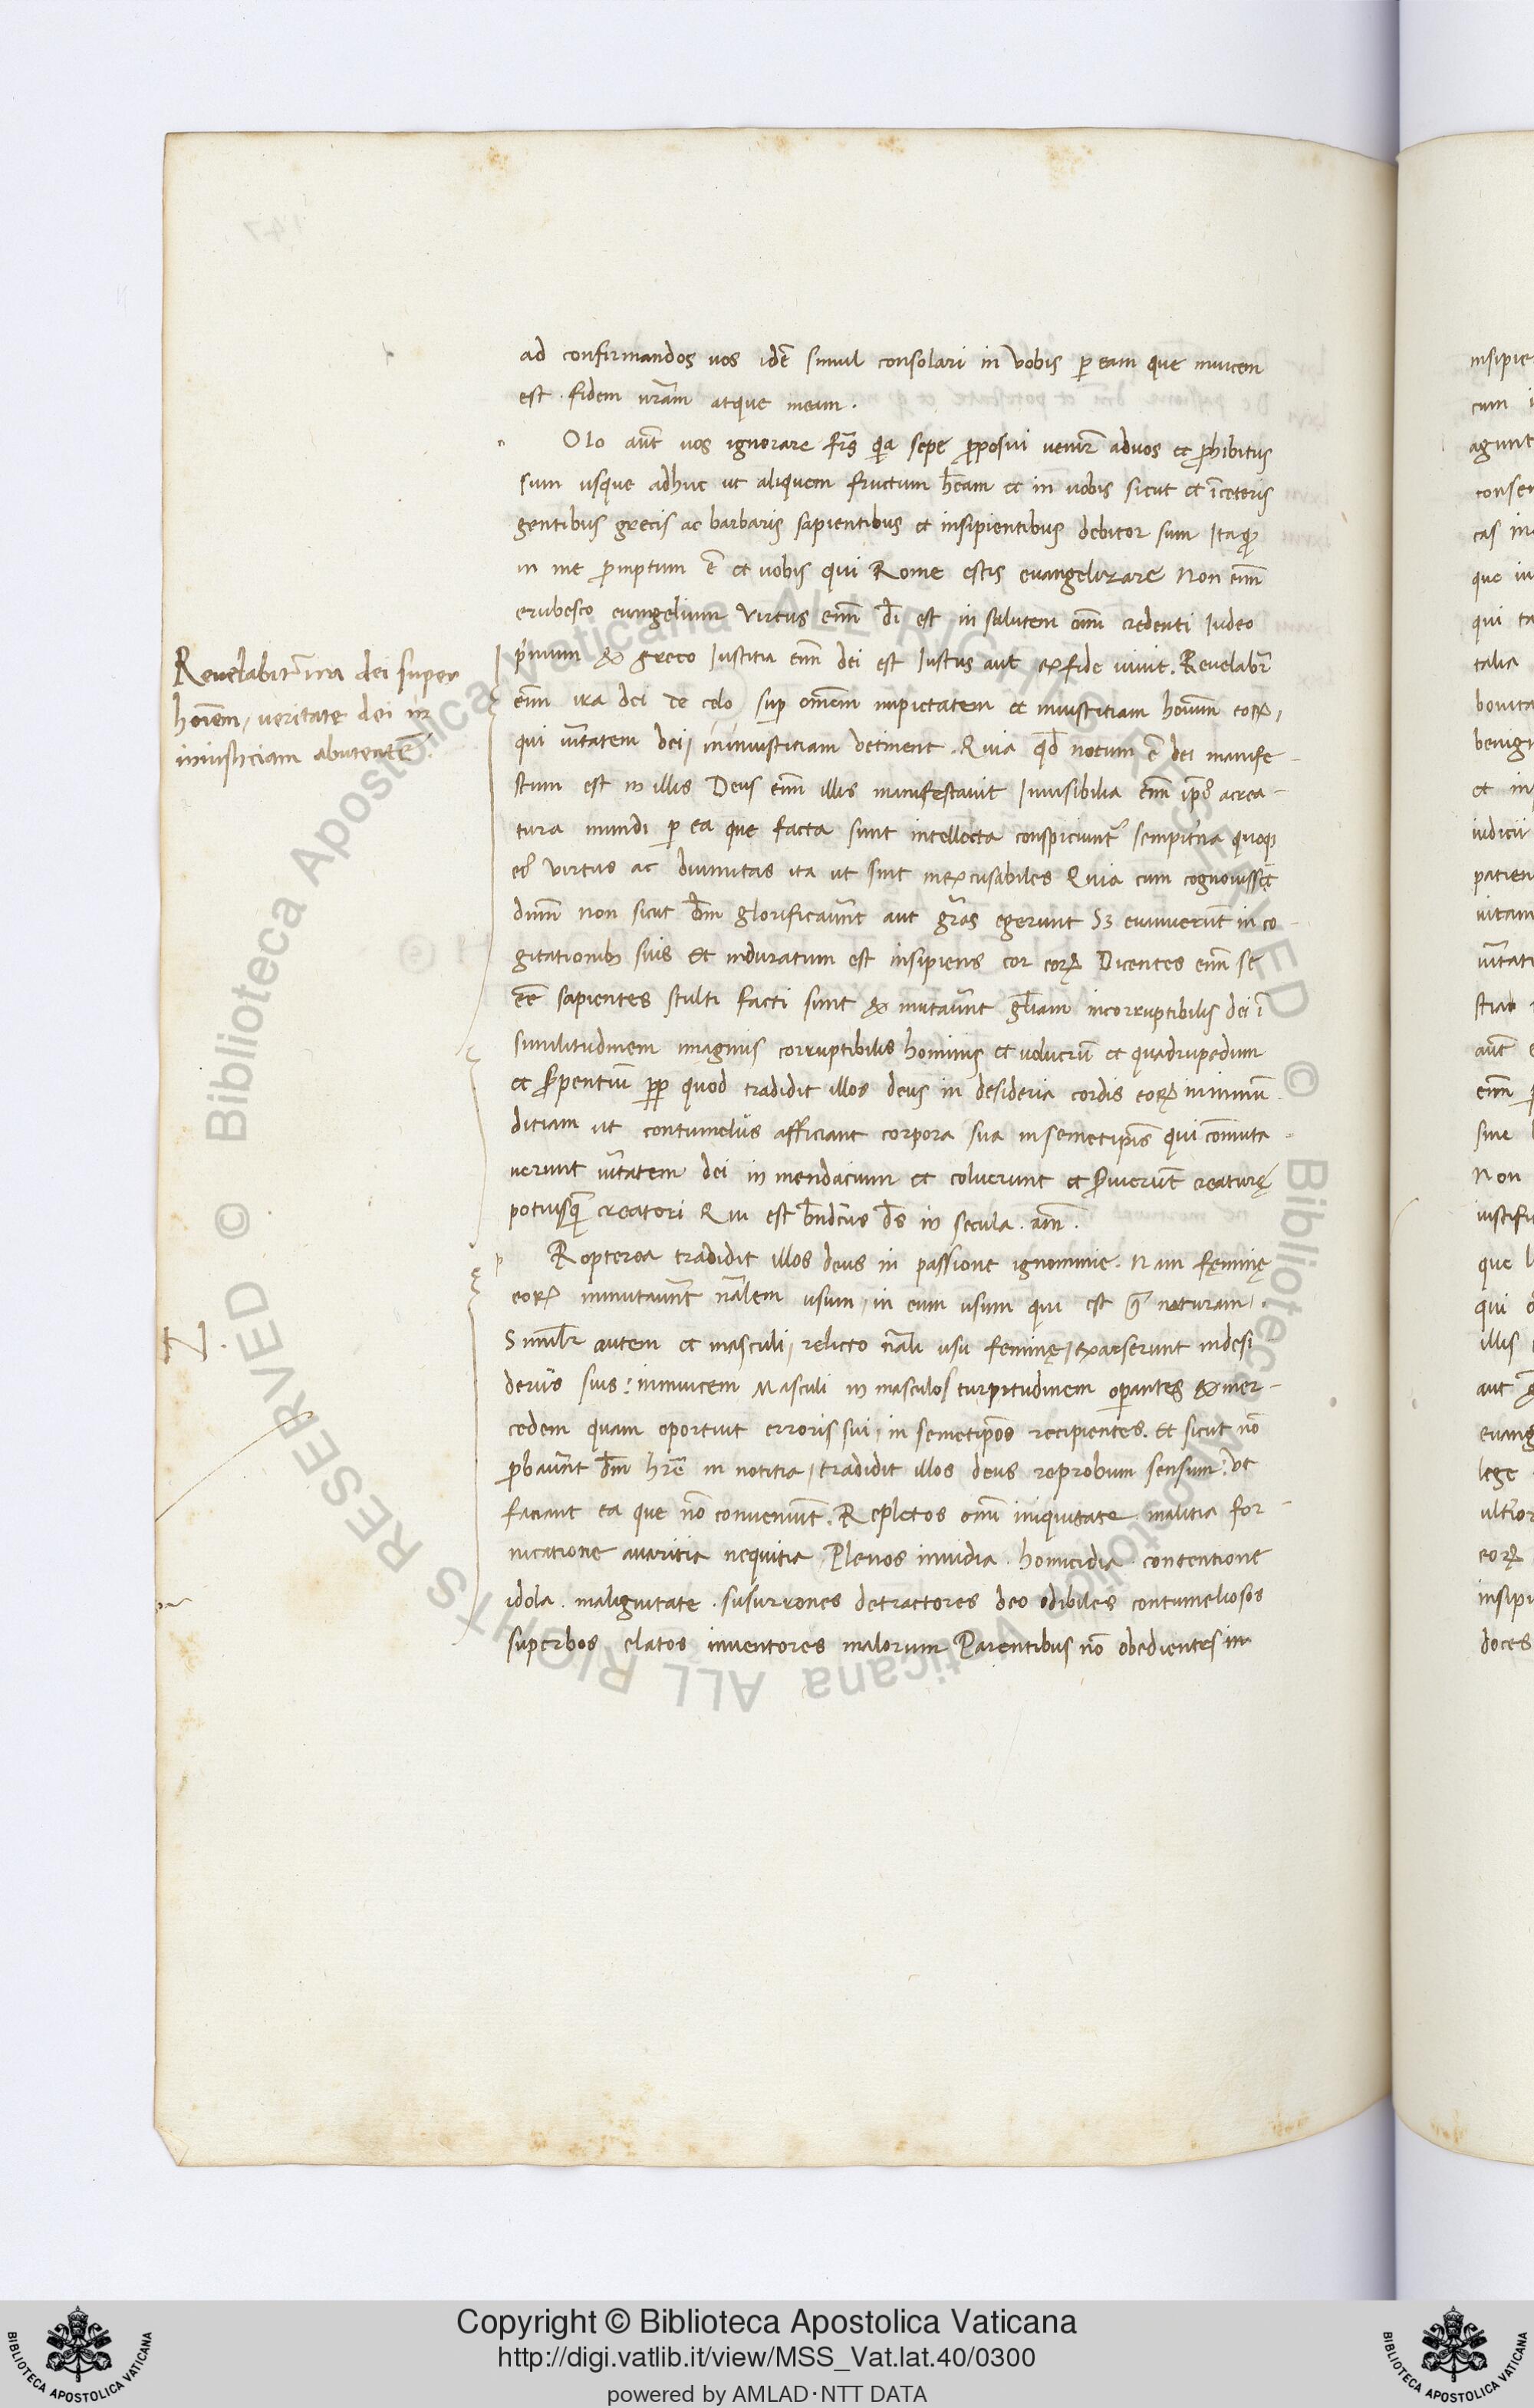 ad confirmandos uos idē simul consolari in vobis ꝑ eam que inuicem
est fidem ur̄am atque meam.
n Olo aūt uos ignorare fr̄s q̄a sepe ꝓposui venir̄ aduos et ꝓhibitus
sum usque adhuc ut aliquem fructum h̄eam et in uobis sicut et ī ceteris
gentibus grecis ac barbaris sapientibus et insipientibus debitor sum Itaq̄
in me ꝓmptum ē et uobis qui Rome estis euangelizare Non eni̅m
erubesco euangelium Virtus eni̅m d̄i est in salutem om̄i credenti Iudeo
p̄mum & greco Iustitia eni̅m dei est Iustus aut ex fide viuit. Reuelabit̄
Reuelabit̄ ira dei super
hoīem, ueritate dei in
iniusticiam abutentē.
eni̅m ira dei de celo sup̄ om̄em impietatem et iniustitiam hominum eoꝝ,
qui u̅itatem dei, in iniustitiam detinent. Quia qđ notum ē dei manife-
stum est in illis Deus eni̅m illis manifestauit Inuisibilia eni̅m ip̄i9 acrea-
tura mundi ꝑ ea que facta sunt intellecta conspiciunt̄ sempit̄na quoqꝫ
ei9 virtus ac diuinitas ita ut sint inexcusabiles Quia cum cognouissēt
deum non sicut d̄m glorificauer̄nt aut gr̄as egerunt Sꝫ euanuerūt in co-
gitationibꝫ suis Et induratum est insipiens cor eoꝝ Dicentes eni̅m se
eē sapientes stulti facti sunt & mutauer̄nt gl̄iam incorruptibilis dei ī
similitudinem imaginis corruptibilis hominis et uolucrū et quadrupedum
et s̄pentiū ꝓp̄ quod tradidit illos deus in desideria cordis eoꝝ in inmū-
ditiam ut contumeliis afficiant corpora sua in semetip̄is qui com̄uta-
uerunt u̅itatem dei in mendacium et coluerunt et s̄uierūt creaturę
potiusq̄ creatori Qui est b̄nd̄cus d̄s in secula. am̄.
p Ropterea tradidit illos deus in passione ignominie. Nam fęminę
eoꝝ inmutauer̄nt n̄alem usum, in eum usum qui est 9̄ naturam.
N.
Simil̄r autem et masculi, relicto n̄ali usu feminę, exarserunt in desi
deriis suis: inuicem Masculi in masculos turpitudinem oꝑantes & mer-
cedem quam oportuit erroris sui, in semetip̄os recipientes. Et sicut nō
ꝓbauer̄nt d̄m hr̄e in notitia, tradidit illos deus reprobum sensum: Vt
faciant ea que nō conueniūt. Repletos om̄i iniquitate malitia for-
nicatione auaritia nequitia Plenos inuidia. homicidia. contentione
idola. malignitate. susurrones detractores deo odibiles contumeliosos
superbos elatos inuentores malorum Parentibus nō obedientes in
© Biblioteca Apostolica Vaticana ALL RIGHTS RESERVED © Biblioteca Apostolica Vaticana ALL RIGHTS RESERVED
insipie
agunt
conse
cas in
que iu
qui ta
talia
bonita
benign
et in
iudicii
patien
aūt e
eni̅m p
sine
Non
iustifi
que
illis
euang
lege
ultior
eoꝝ
insipi
doces
BIBLIOTECA APOSTOLICA VATICANA
Copyright © Biblioteca Apostolica Vaticana
http://digi.vatlib.it/view/MSS_Vat.lat.40/0300
powered by AMLAD·NTT DATA
BIBLIOTECA APOSTOLICA VATICANA